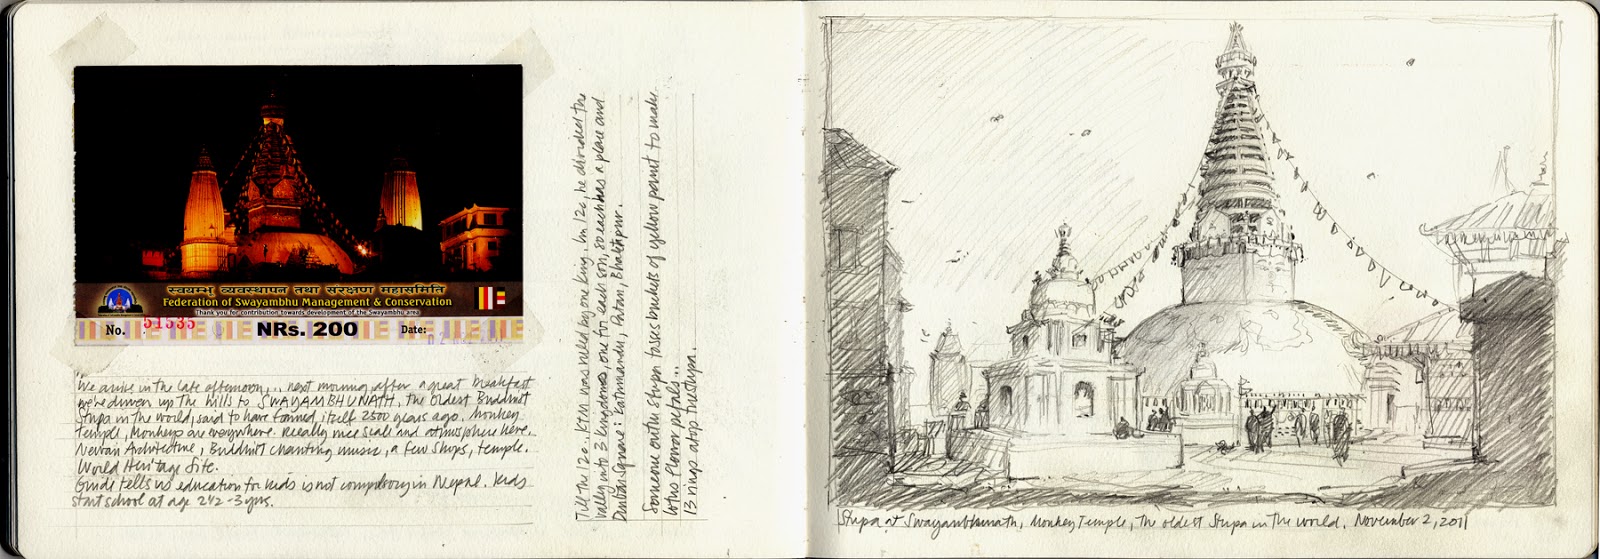 स्वयम्भु व्यवस्थापन तथा संरक्षण महासमिति
Federation of Swayambhu Management & Conservation
Thank you for contribution towards development of the Swayambhu area
No. 51535 NRs. 200 Date:
We arrive in the late afternoon,... next morning, after a great breakfast
we're driven up the hills to SWAYAMBHUNATH, the oldest Buddhist
Stupa in the world, said to have formed itself 2500 years ago. Monkey
Temple, Monkeys are everywhere. Really nice scale and atmosphere here.
Nevari Architecture, Buddhist chanting music, a few shops, temple.
World Heritage Site.
Guide tells us education for kids is not compulsory in Nepal. Kids
start school at age 2 1/2 - 3 yrs.
Till the 12c. KTM was ruled by one king. In 12c, he divided the
valley into 3 kingdoms, one for each son, so each has a place and
Durbar Square: Kathmandu, Patan, Bhaktapur.
Someone on the stupa tosses buckets of yellow paint to make
lotus flower petals...
13 rings atop the stupa.
Stupa at Swayambhunath, Monkey Temple, the oldest Stupa in the world. November 2, 2011